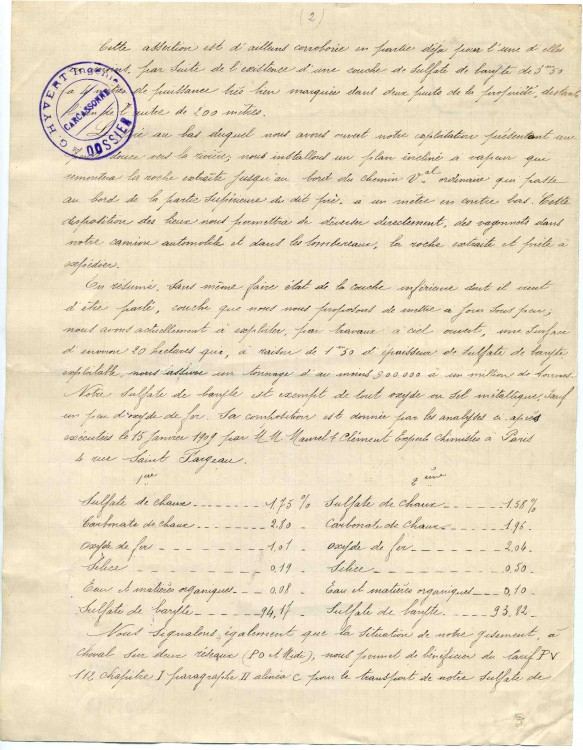 (2)
Cette assertion est d'ailleurs corroborée en partie déjà pour l'une d'elles
par suite de l'existence d'une couche de sulfate de baryte de 3m50
à 4 mètres de puissance très bien marquée dans deux puits de la propriété, distants
l'un de l'autre de 200 mètres.
G. HYVERT Ingénieur
CARCASSONNE
DOSSIER
au bas duquel nous avons ouvert notre exploitation présentant une
douce vers la rivière, nous installons un plan incliné à vapeur qui
remontera la roche extraite jusqu'au bord du chemin Val ordinaire qui passe
au bord de la partie supérieure du dit pré. à un mètre en contre bas. Cette
disposition des lieux nous permettra de déverser directement, des wagonnets dans
notre camion automobile et dans les tombereaux, la roche extraite et prête à
expédier.
En résumé, sans même faire état de la couche inférieure dont il vient
d'être parlé, couche que nous nous proposons de mettre à jour sous peu,
nous avons actuellement à exploiter, par travaux à ciel ouvert, une surface
d'environ 20 hectares qui, à raison de 1m50 d'épaisseur de sulfate de baryte
exploitable, nous assure un tonnage d'au moins 900.000 à un million de tonnes.
Notre sulfate de baryte est exempt de tout oxyde ou sel métallique, sauf
un peu d'oxyde de fer. Sa composition est donnée par les analyses ci-après
exécutées le 15 Janvier 1909 par MM Maurel & Clément Experts Chimistes à Paris
4 rue Saint Fargeau.
1er 2ème
Sulfate de chaux 1,75 % Sulfate de chaux 1.58 %
Carbonate de chaux 2.80 Carbonate de chaux 1.95
Oxyde de fer 1,01 Oxyde de fer 2.04
Silice 0,19 Silice 0,50
Eau et matières organiques 0.08 Eau et matières organiques 0,10
Sulfate de baryte 94,17 Sulfate de baryte 93,82
Nous signalons également que la situation de notre gisement, à
cheval sur deux réseaux (PO et Midi), nous permet de bénéficier du tarif PV
112, chapitre I paragraphe II alinéa C pour le transport de notre sulfate de